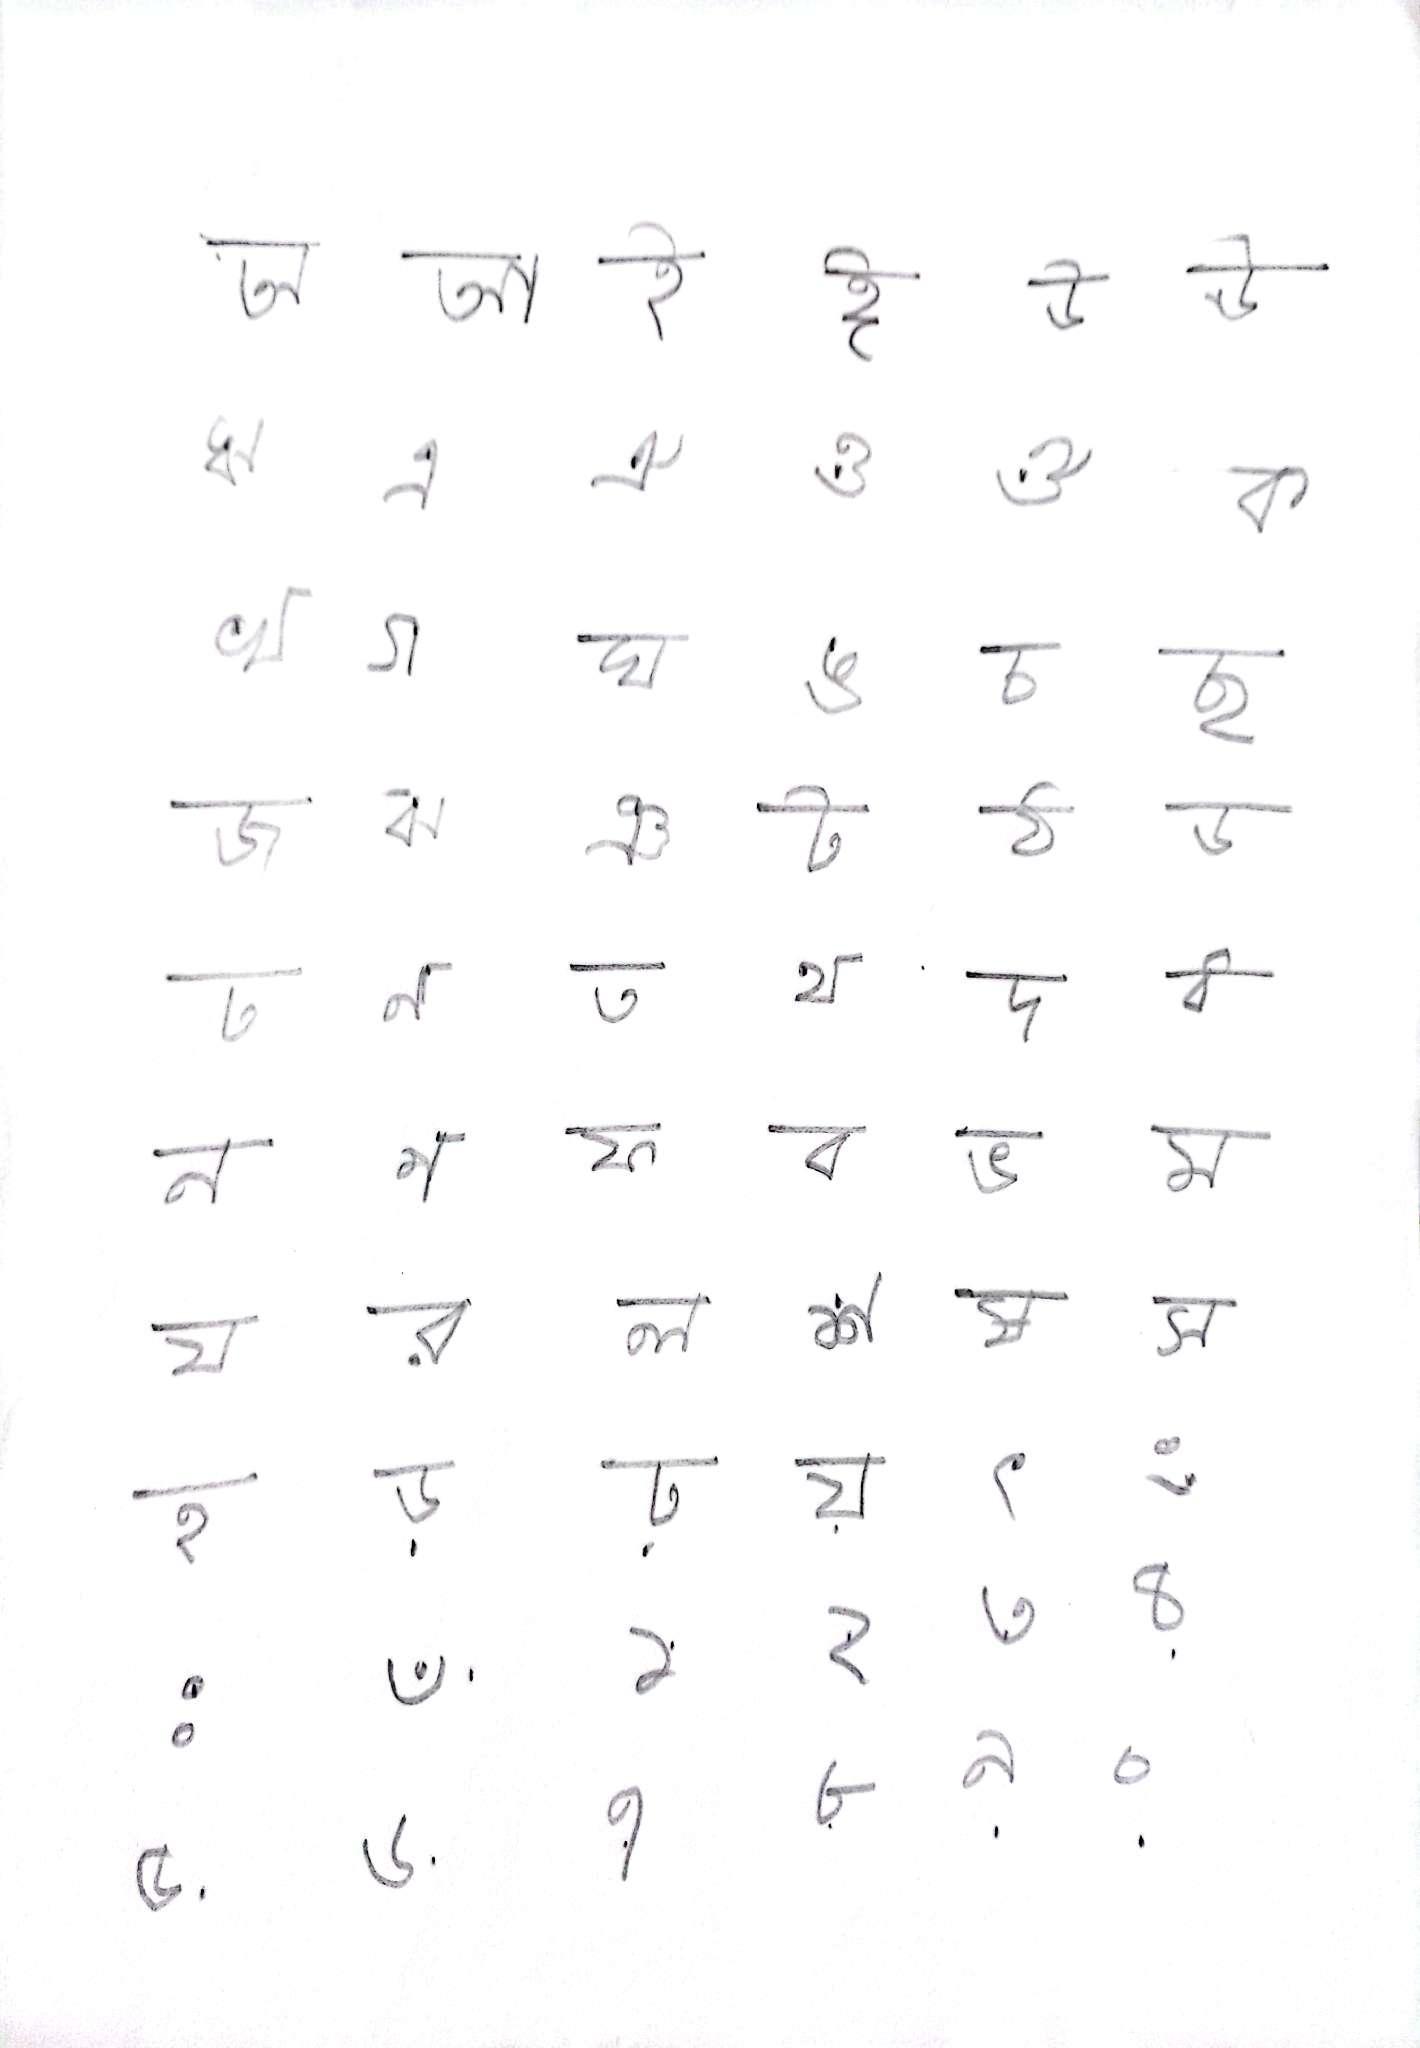 অ আ ই ঈ উ ঊ
ঋ এ ঐ ও ঔ ক
খ গ ঘ ঙ চ ছ
জ ঝ ঞ ট ঠ ড
ঢ ণ ত থ দ ধ
ন প ফ ব ভ ম
য র ল শ ষ স
হ ড় ঢ় য় ৎ ং
ঃ ঁ ১ ২ ৩ ৪
৫ ৬ ৭ ৮ ৯ ০